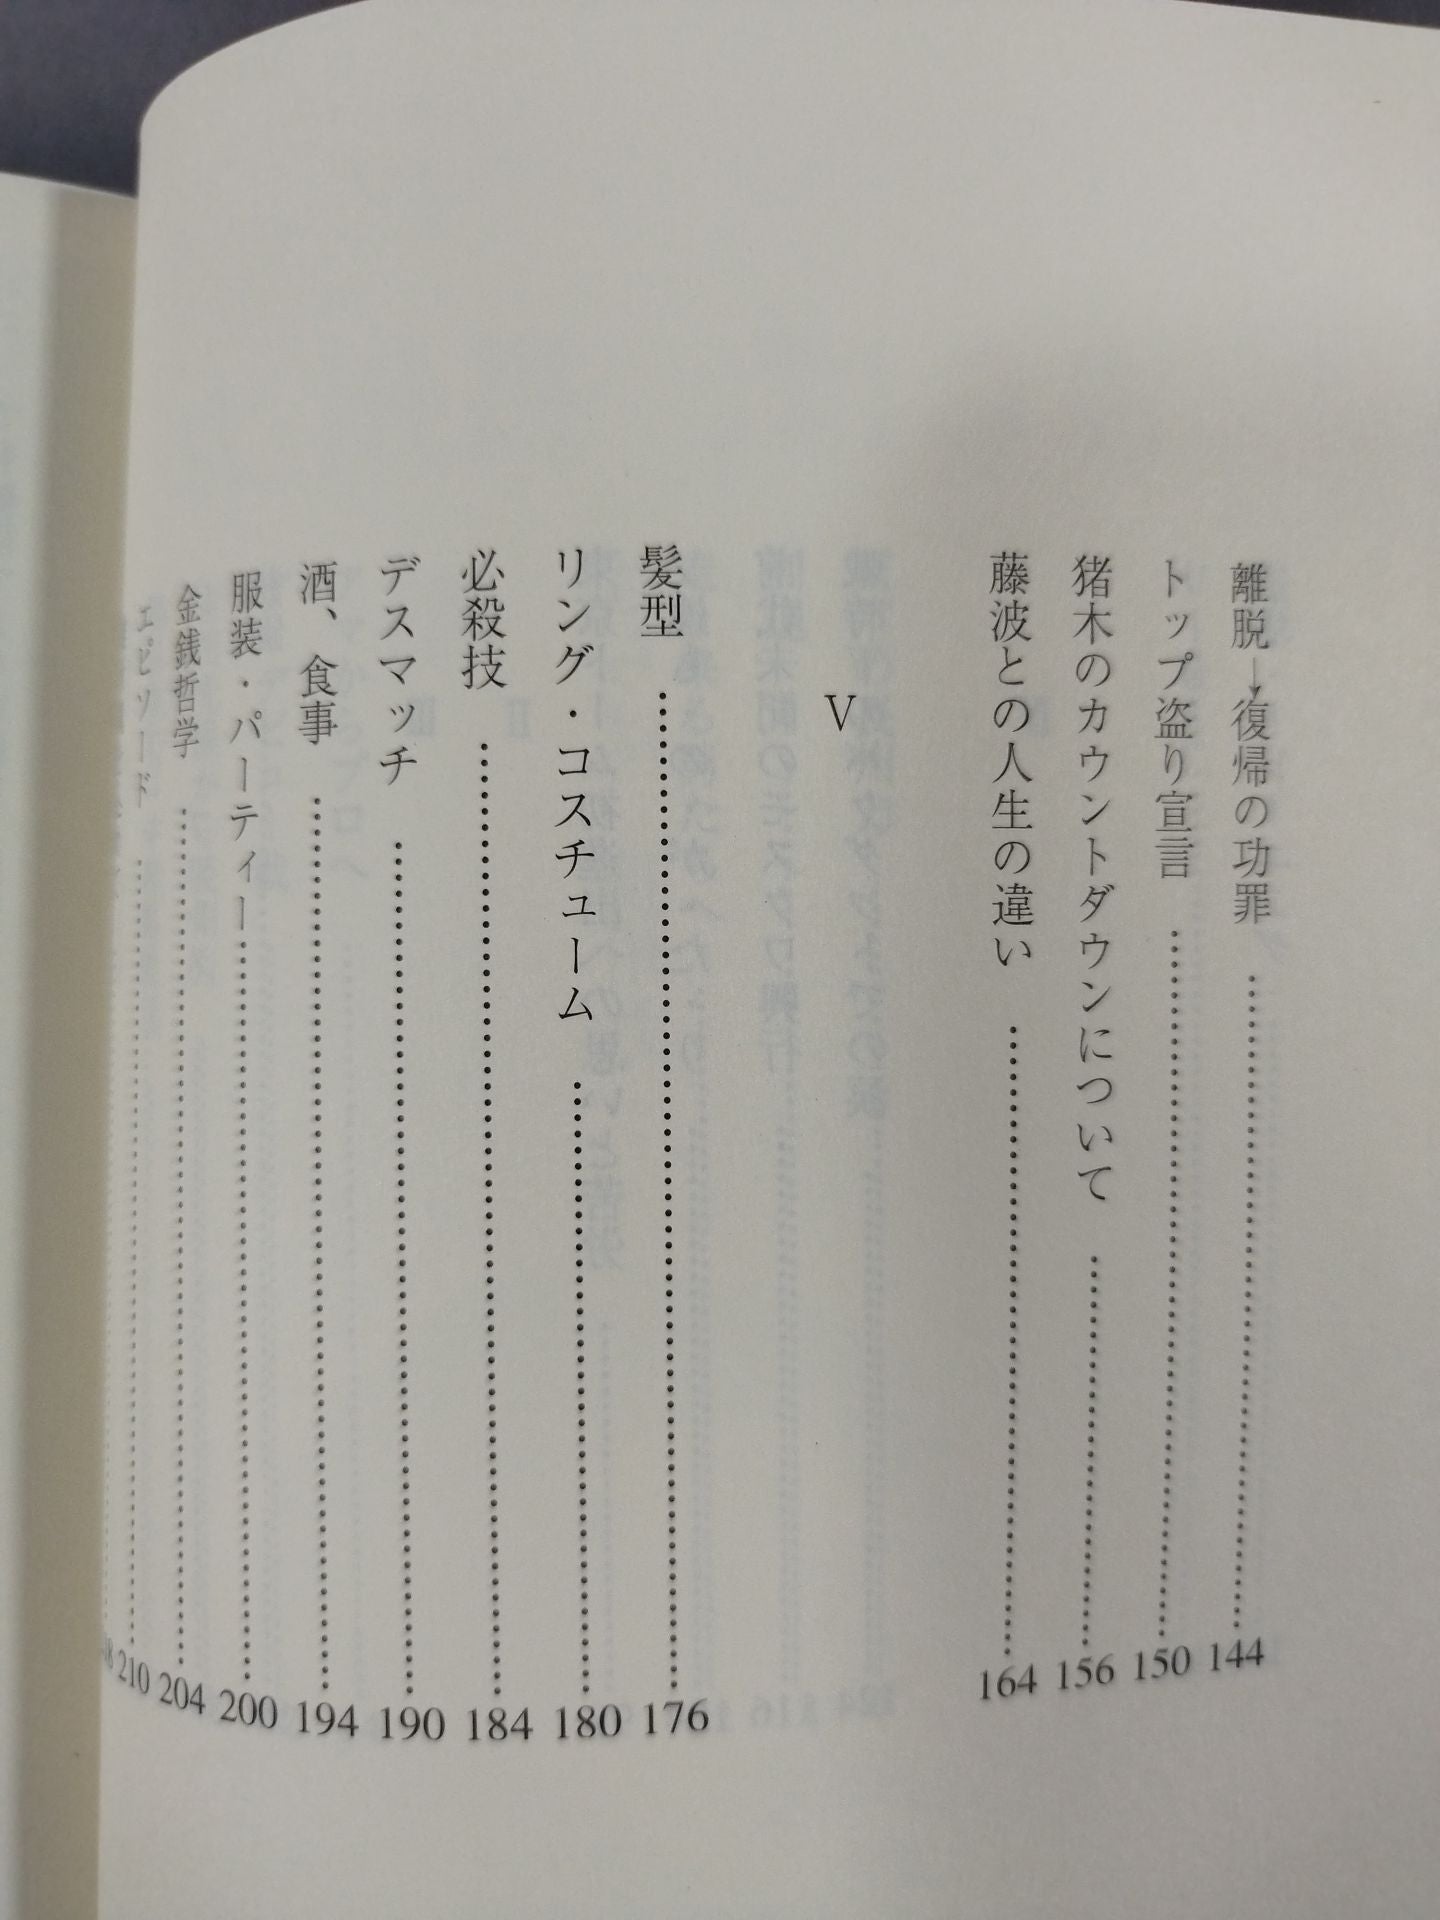 離脱→復帰の功罪 ……… 144
トップ盗り宣言 ……… 150
猪木のカウントダウンについて ……… 156
藤波との人生の違い ……… 164
V
髪型 ……… 176
リング・コスチューム ……… 180
必殺技 ……… 184
デスマッチ ……… 190
酒、食事 ……… 194
服装・パーティー ……… 200
金銭哲学 ……… 204
エピソード ……… 210